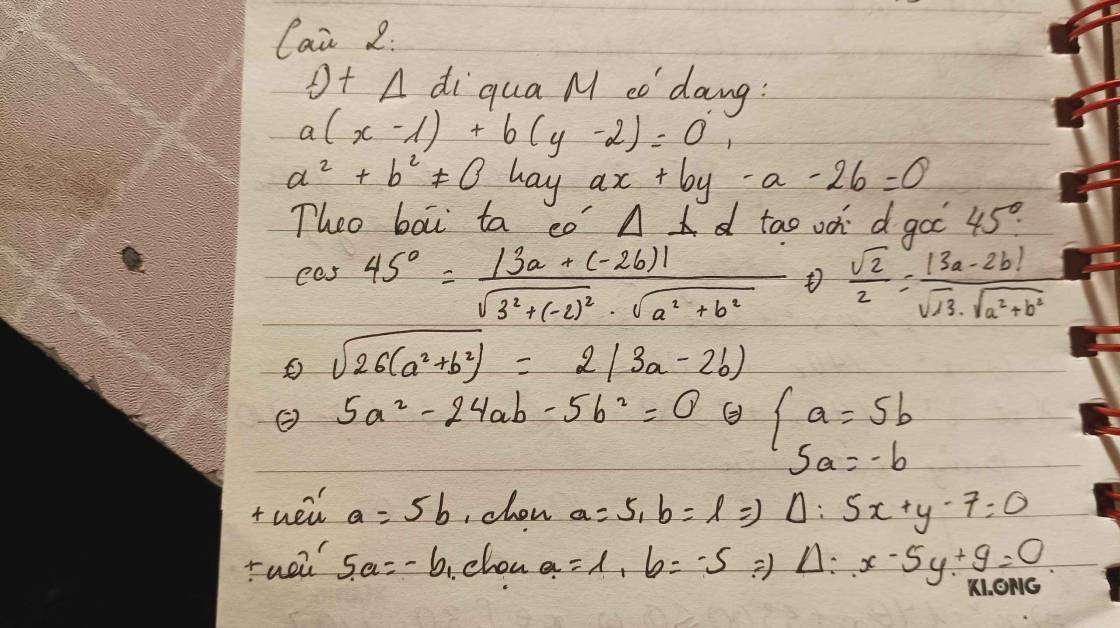 Câu 2:
Đt Δ đi qua M có dạng:
a(x - 1) + b(y - 2) = 0,
a² + b² ≠ 0 hay ax + by - a - 2b = 0
Theo bài ta có Δ d tạo với d góc 45°:
cos 45° = |3a + (-2b)| / √(3² + (-2)²) . √(a² + b²) ⇔ √2/2 = |3a - 2b| / √13 . √(a² + b²)
⇔ √26(a² + b²) = 2|3a - 2b|
⇔ 5a² - 24ab - 5b² = 0 ⇔ { a = 5b
5a = -b
+ nếu a = 5b, chọn a = 5, b = 1 ⇒ Δ: 5x + y - 7 = 0
+ nếu 5a = -b, chọn a = 1, b = -5 ⇒ Δ: x - 5y + 9 = 0
KLONG